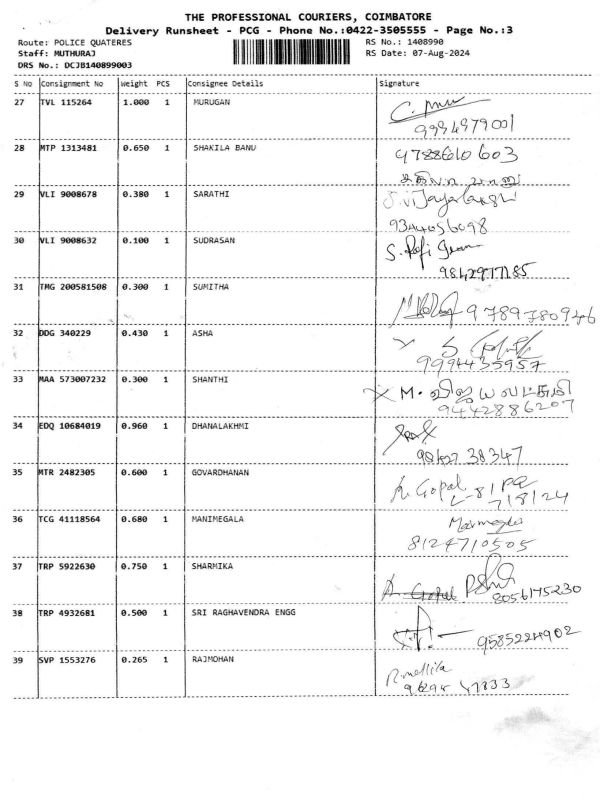 THE PROFESSIONAL COURIERS, COIMBATORE
Delivery Runsheet - PCG - Phone No.:0422-3505555 - Page No.:3
Route: POLICE QUATERES RS No.: 1408990
Staff: MUTHURAJ RS Date: 07-Aug-2024
DRS No.: DCJB140899003
S No Consignment No Weight PCS Consignee Details Signature
27 TVL 115264 1.000 1 MURUGAN
9994979001
28 MTP 1313481 0.650 1 SHAKILA BANU 9788610603
29 VLI 9008678 0.380 1 SARATHI
9344056098
30 VLI 9008632 0.100 1 SUDRASAN
31 TMG 200581508 0.300 1 SUMITHA
9789780946
32 DDG 340229 0.430 1 ASHA
9994435957
33 MAA 573007232 0.300 1 SHANTHI M. விஜயலட்சுமி
9442886207
34 EDQ 10684019 0.960 1 DHANALAKHMI
35 MTR 2482305 0.600 1 GOVARDHANAN Gopal
7/8/24
36 TCG 41118564 0.680 1 MANIMEGALA
8124710505
37 TRP 5922630 0.750 1 SHARMIKA
8056175230
38 TRP 4932681 0.500 1 SRI RAGHAVENDRA ENGG
9585224902
39 SVP 1553276 0.265 1 RAJMOHAN